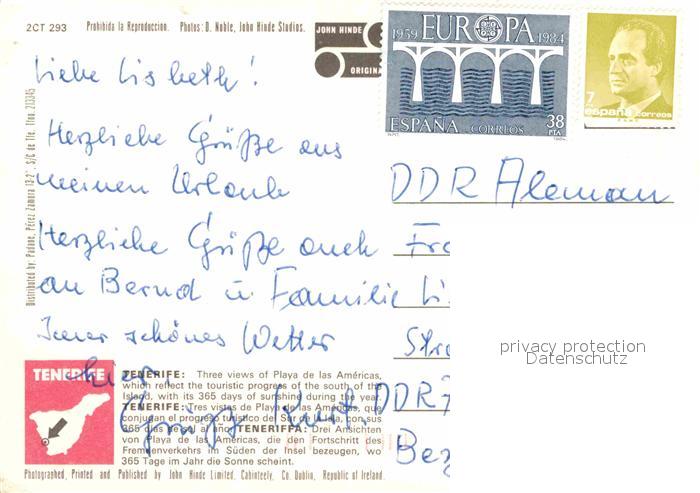 2CT 293 Prohibida la Reproduccion. Photos: D. Noble, John Hinde Studios.
JOHN HINDE
ORIGIN
EUROPA
1959 1984
ESPAÑA CORREOS 38 PTA
7
españa correos
Distributed by: Padone, Pérez Zamora 13-2° S/C de Tfe. Tfno: 213345
Liebe Lisbeth!
Herzliche Grüße aus
meinen Urlaub
Herzliche Grüße auch
an Bernd u Familie
Immer schönes Wetter
hier
Grüßt Kurt
DDR Aleman
Fr
Li
Str
DDR 7
Bez
privacy protection
Datenschutz
TENERIFE
TENERIFE: Three views of Playa de las Américas,
which reflect the touristic progress of the south of the
island, with its 365 days of sunshine during the year.
TENERIFE: Tres vistas de Playa de las Américas, que
conjugan el progreso turístico del Sur de la Isla, con sus
365 días de sol al año. TENERIFFA: Drei Ansichten
von Playa de las Américas, die den Fortschritt des
Fremdenverkehrs im Süden der Insel bezeugen, wo
365 Tage im Jahr die Sonne scheint.
Photographed, Printed and Published by John Hinde Limited, Cabinteely, Co. Dublin, Republic of Ireland.